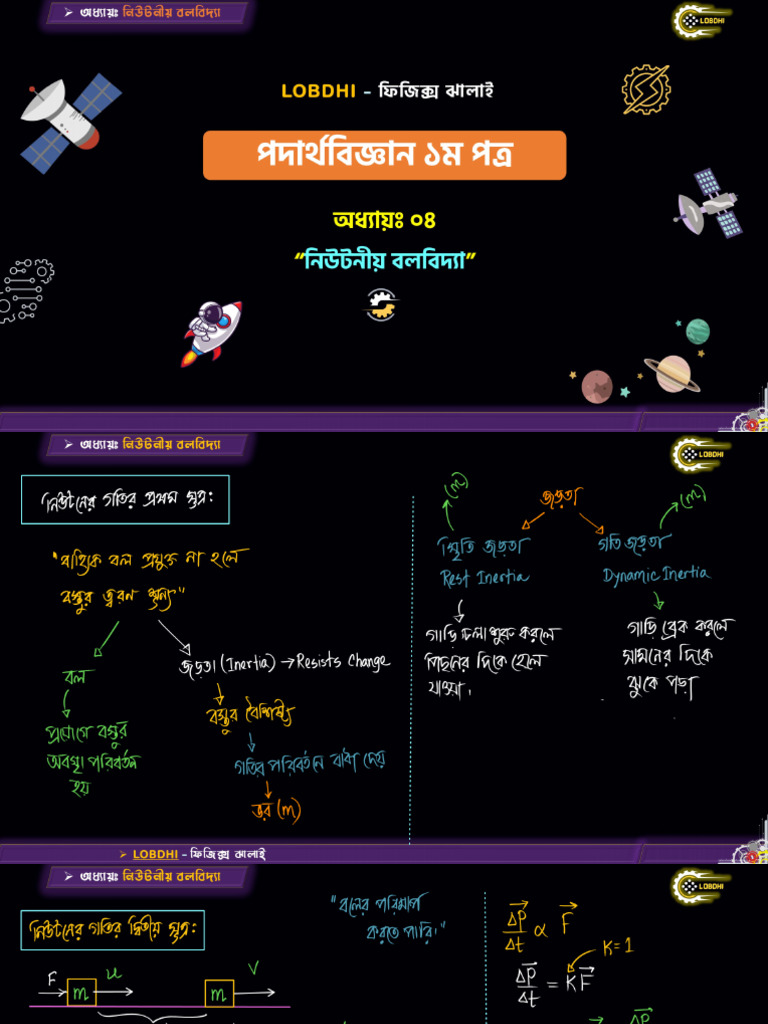 ➢ অধ্যায়ঃ নিউটনীয় বলবিদ্যা
LOBDHI
LOBDHI – ফিজিক্স ঝালাই
পদার্থবিজ্ঞান ১ম পত্র
অধ্যায়ঃ ০৪
“নিউটনীয় বলবিদ্যা”
➢ অধ্যায়ঃ নিউটনীয় বলবিদ্যা
LOBDHI
নিউটনের গতির প্রথম সূত্র:
"বাহ্যিক বল প্রযুক্ত না হলে
বস্তুর ত্বরণ শূন্য"
বল
প্রয়োগে বস্তুর
অবস্থা পরিবর্তন
হয়
জড়তা (Inertia) → Resists Change
বস্তুর বৈশিষ্ট্য
গতির পরিবর্তনে বাধা দেয়
ভর (m)
জড়তা
(m)
স্থিতি জড়তা
Rest Inertia
গাড়ি চলা শুরু করলে
পিছনের দিকে হেলে
যাওয়া।
(m)
গতি জড়তা
Dynamic Inertia
গাড়ি ব্রেক করলে
সামনের দিকে
ঝুকে পড়া
➢ LOBDHI – ফিজিক্স ঝালাই
➢ অধ্যায়ঃ নিউটনীয় বলবিদ্যা
LOBDHI
নিউটনের গতির দ্বিতীয় সূত্র:
F u v
m m
"বলের পরিমাপ
করতে পারি।"
ΔP⃗/Δt ∝ F⃗
K=1
ΔP⃗/Δt = KF⃗
ΔP⃗